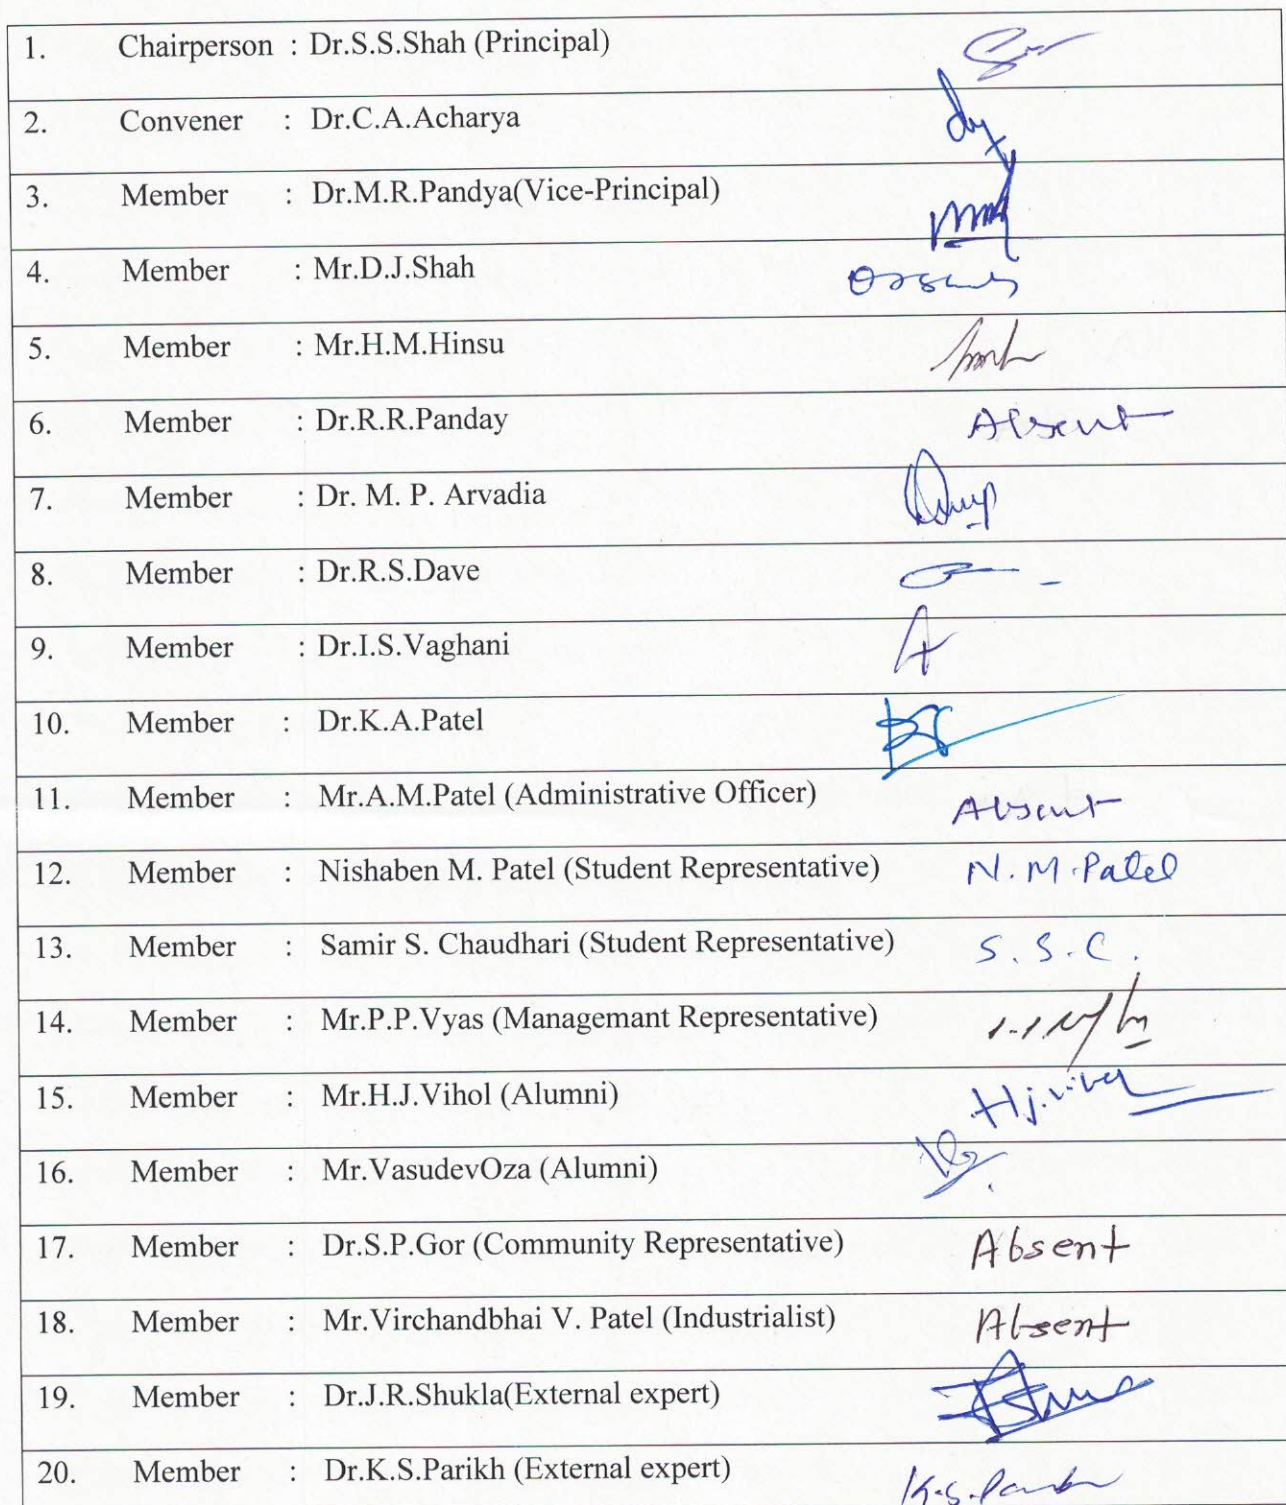 1. Chairperson : Dr.S.S.Shah (Principal)
2. Convener : Dr.C.A.Acharya
3. Member : Dr.M.R.Pandya(Vice-Principal)
4. Member : Mr.D.J.Shah
5. Member : Mr.H.M.Hinsu
6. Member : Dr.R.R.Panday Absent
7. Member : Dr. M. P. Arvadia
8. Member : Dr.R.S.Dave
9. Member : Dr.I.S.Vaghani
10. Member : Dr.K.A.Patel
11. Member : Mr.A.M.Patel (Administrative Officer) Absent
12. Member : Nishaben M. Patel (Student Representative) N.M.Patel
13. Member : Samir S. Chaudhari (Student Representative) S.S.C.
14. Member : Mr.P.P.Vyas (Managemant Representative)
15. Member : Mr.H.J.Vihol (Alumni)
16. Member : Mr.VasudevOza (Alumni)
17. Member : Dr.S.P.Gor (Community Representative) Absent
18. Member : Mr.Virchandbhai V. Patel (Industrialist) Absent
19. Member : Dr.J.R.Shukla(External expert)
20. Member : Dr.K.S.Parikh (External expert)